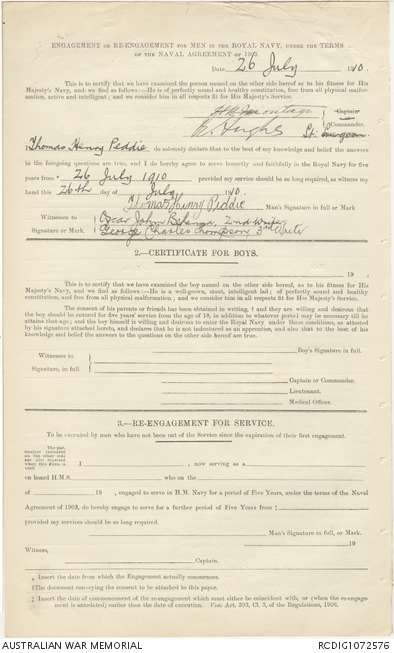 ENGAGEMENT OR RE-ENGAGEMENT FOR MEN IN THE ROYAL NAVY, UNDER THE TERMS
OF THE NAVAL AGREEMENT OF 1903.
Date 26 July 1910
This is to certify that we have examined the person named on the other side hereof as to his fitness for His
Majesty's Navy, and we find as follows:—He is of perfectly sound and healthy constitution, free from all physical malformation, active and intelligent; and we consider him in all respects fit for His Majesty's Service.
Captain
Commander.
Hughes St. Surgeon.
Thomas Henry Peddie do solemnly declare that to the best of my knowledge and belief the answers
to the foregoing questions are true, and I do hereby agree to serve honestly and faithfully in the Royal Navy for five
years from * 26 July 1910 provided my service should be so long required, as witness my
hand this 26th day of July 1910.
Thomas Henry Peddie Man's Signature in full or Mark
Witnesses to Oscar John 2nd Writer
Signature or Mark George Charles Thompson 3rd Writer
2.—CERTIFICATE FOR BOYS.
19 .
This is to certify that we have examined the boy named on the other side hereof, as to his fitness for His Majesty's Navy,
and we find as follows:—He is a well-grown, stout, intelligent lad; of perfectly sound and healthy
constitution, and free from all physical malformation; and we consider him in all respects fit for His Majesty's Service.
The consent of his parents or friends has been obtained in writing, † and they are willing and desirous that
the boy should be entered for five years' service from the age of 18, in addition to whatever period may be necessary till he
attains that age; and the boy himself is willing and desirous to enter the Royal Navy under these conditions, as attested by
his signature attached hereto, and declares that he is not indentured as an apprentice, and also that to the best of his
knowledge and belief the answers to the questions on the other side hereof are true.
Boy's Signature in full.
Witnesses to
Signature, in full
Captain or Commander.
Lieutenant.
Medical Officer.
3.—RE-ENGAGEMENT FOR SERVICE.
To be executed by men who have not been out of the Service since the expiration of their first engagement.
I , now serving as a
on board H.M.S. who on the
of 19 , engaged to serve in H.M. Navy for a period of Five Years, under the terms of the Naval
Agreement of 1903, do hereby engage to serve for a further period of Five Years from ‡
provided my services should be so long required.
Man's Signature in full, or Mark.
19
Witness,
Captain.
* Insert the date from which the Engagement actually commences.
† The document conveying the consent to be attached to this paper.
‡ Insert the date of commencement of re-engagement which must either be coincident with, or (when the re-engagement is antedated) earlier than the date of execution. Vide Art. 393, Cl. 3, of the Regulations, 1906.
AUSTRALIAN WAR MEMORIAL
RCDIG1072576